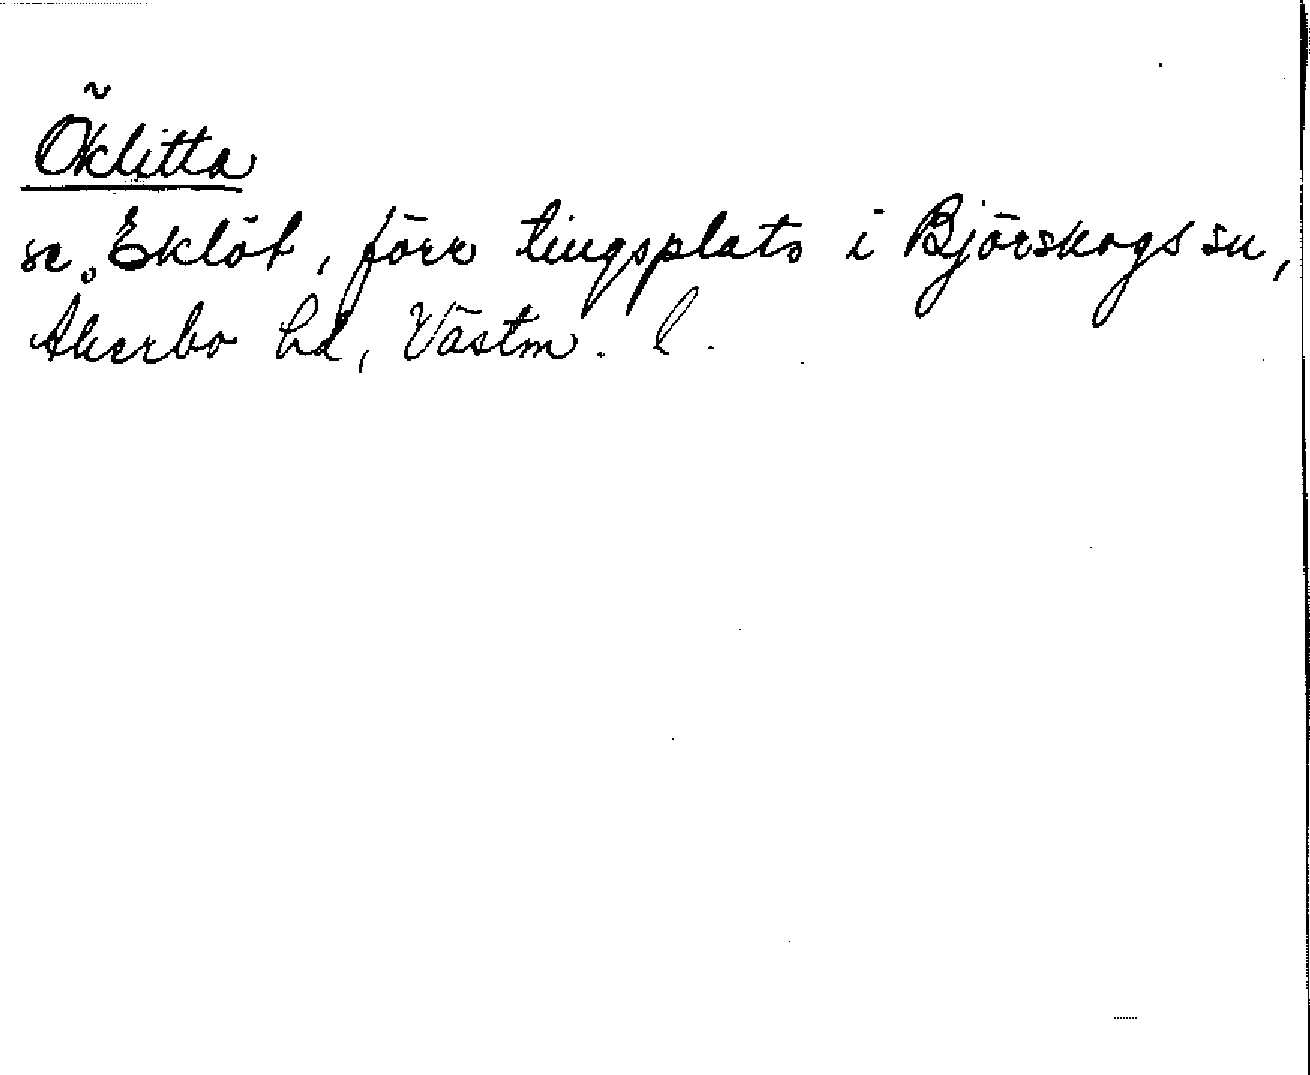 Öklitta
se Eklöt, förr tingsplats i Björskogs sn,
Åkerbo hd, Västm. l.